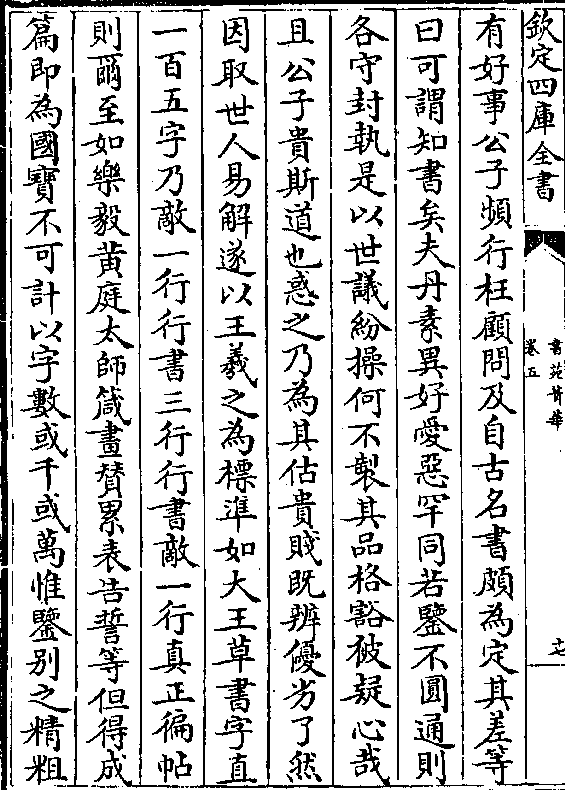 欽定四庫全書
書苑菁華
卷五
有好事公子頻行枉顧問及自古名書頗為定其差等
曰可謂知書矣夫丹素異好愛惡罕同若鑒不圓通則
各守封執是以世議紛操何不製其品格豁彼疑心哉
且公子貴斯道也惑之乃為其估貴賤既辨優劣了然
因取世人易解遂以王羲之為標準如大王草書字直
一百五字乃敵一行行書三行行書敵一行真正徧帖
則爾至如樂毅黄庭太師箴畫賛累表告誓等但得成
篇即為國寶不可計以字數或千或萬惟鑒别之精粗